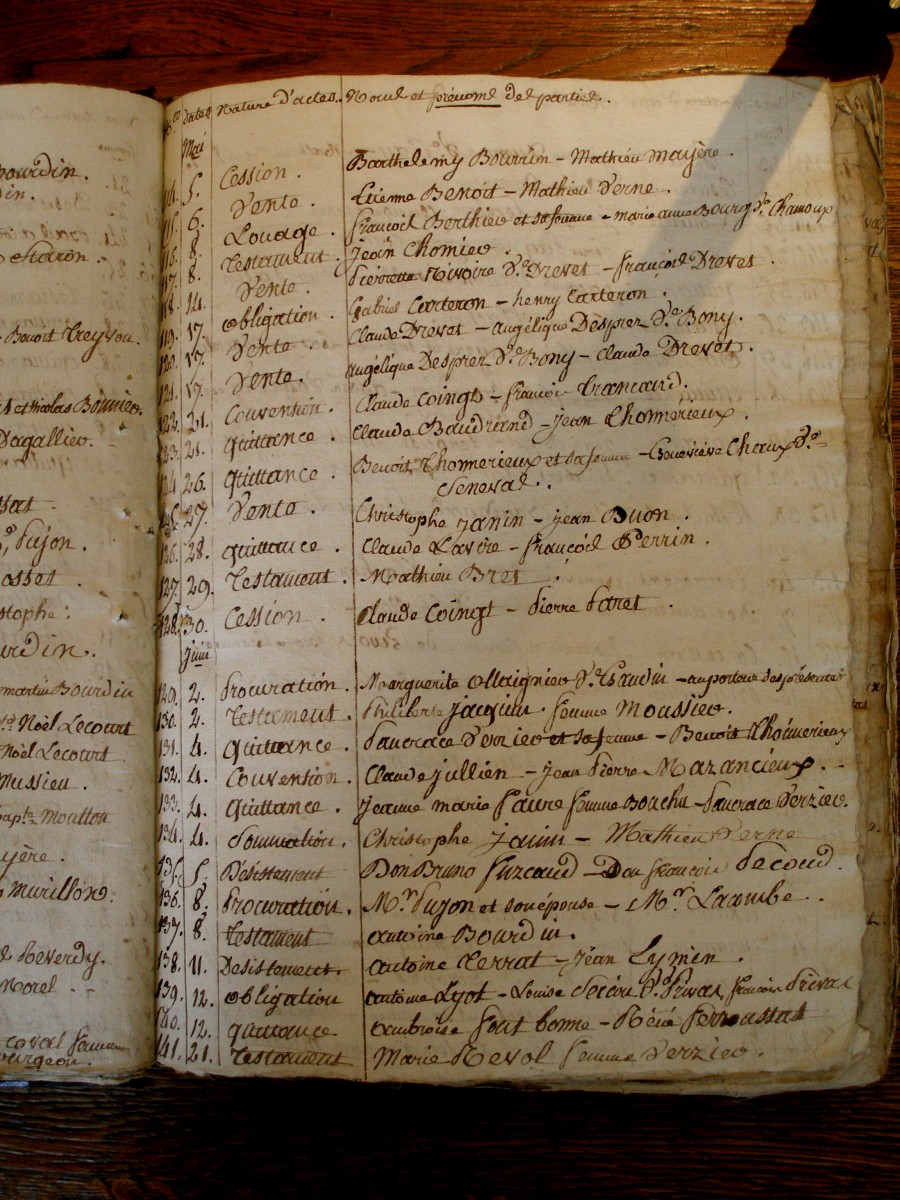 Bourdin.
din.
Staron.
Benoit Treyvou.
et nicolas Bonnier.
Dagallier.
Dujon.
osset.
stophe:
urdin.
martin Bourdin
Noël Lecourt
Noël Lecourt
Mussieu.
bapt.e Moulton
yère.
Murillon.
Reverdy.
Morel.
coval femme
bourgeon.
N.os dates Nature d'actes. Nom et prénoms des parties.
Mai
114. 5. Cession. Barthelemy Bourrin - Mathieu Mayère.
115. 6. Vente. Etienne Benoit - Mathieu Verne.
116. 8. Louage. francois Berthier et sa femme - marie anne Bourg v.e Chamoux
117. 8. Testament. jean Chomier.
118. 14. Vente. pierrette Rivoire V.e Drevet - françois Drevet.
119. 17. obligation. Gabriel Carteron - henry Carteron.
120. 17. Vente. Claude Drevet - angélique Desprez V.e Bony.
121. 17. Vente. angélique Desprez V.e Bony - Claude Drevet.
122. 21. Convention. Claude Coingt - francois brancard.
123. 21. quittance. Claude Baudrand - jean Chomérieux.
124. 26. quittance. Benoit Thomerieux et sa femme - Geneviève Cheaux V.e
Seneval.
125. 27. Vente. Christophe janin - jean Buon.
126. 28. quittance. Claude Lavère - françois Perrin.
127. 29. Testament. Mathieu Bret.
128. 30. Cession. Claude Coingt - pierre paret.
juin
129. 2. procuration. Marguerite Allaignier V.e - au porteur des présentes
130. 2. Testament. Philiberte jacquin. femme Moussier.
131. 4. quittance. pancrace Verzier et sa femme - Benoit Thómerieux
132. 4. Convention. Claude jullien - jean pierre Mazancieux.
133. 4. quittance. jeanne marie faure femme Bouchu - pancrace Verzier.
134. 4. donnation. Christophe janin - Mathieu Verne
135. 5. Désistement Don Bruno fuzeaud - Don francois pecoud.
136. 8. procuration. M.r Dujon et son épouse - M.r Lacombe.
137. 8. Testament antoine Bourdin.
138. 11. Desistement. antoine Terrat - jean Lymen.
139. 12. obligation antoine Lyot - Louise V.e privas, françois privas
140. 12. quittance ambroise font bonne - Réné ferroustat
141. 21. Testament Marie Revol femme Verzier.